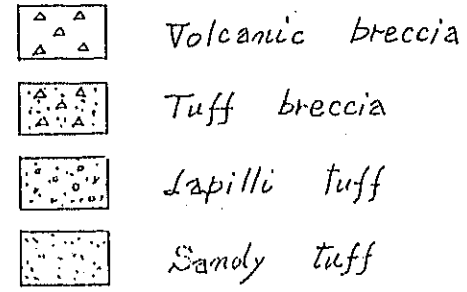 Volcanic breccia
Tuff breccia
Lapilli tuff
Sandy tuff